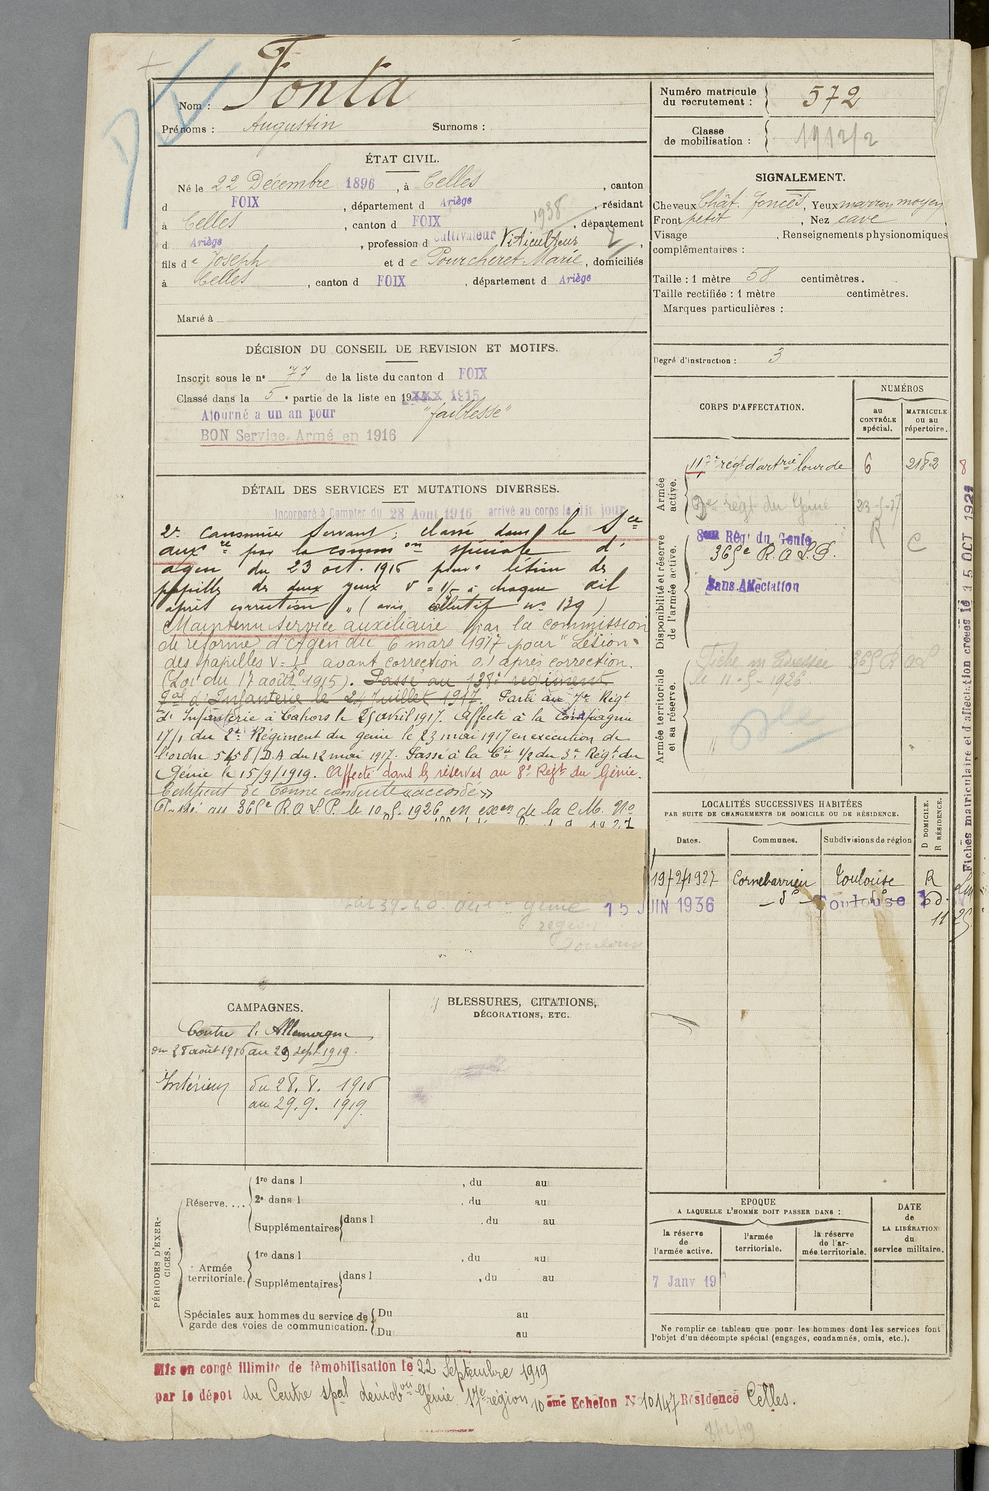 Nom : Fonta
Prénoms : Augustin Surnoms :
ÉTAT CIVIL.
Né le 22 Décembre 1896, à Celles, canton
d FOIX, département d Ariège, résidant
à Celles, canton d FOIX, département
d Ariège, profession d cultivateur Viticulteur 1938
fils de Joseph et de Pourcheret Marie, domiciliés
à Celles, canton d FOIX, département d Ariège
Marié à
DÉCISION DU CONSEIL DE REVISION ET MOTIFS.
Inscrit sous le n° 77 de la liste du canton d FOIX
Classé dans la 5e partie de la liste en 19 1915
Ajourné a un an pour "faiblesse"
BON Service Armé en 1916
DÉTAIL DES SERVICES ET MUTATIONS DIVERSES.
Incorporé à Compter du 28 Aout 1916 arrivé au corps le dit jour
2e canonnier servant ; classé dans le Sce
auxre par la common spéciale d'
Agen du 23 oct. 1916 pour lésion des
papilles des deux yeux V = à chaque œil
après correction (avis n° 139)
Maintenu service auxiliaire par la commission
de réforme d'Agen du 6 mars 1917 pour "Lésion
des papilles V = avant correction après correction.
(Loi du 17 août 1915). Passé au régiment
d'Infanterie le 24 Juillet 1917. Passé au 7e Régt
d'Infanterie à Cahors le 25 avril 1917. Affecté à la Compagnie
17/1 du 2e Régiment du génie le 23 mai 1917 en exécution de
l'ordre D.A du 12 mai 1917. Passé à la Cie 1/2 du 3e Régt du
Génie le 15/3/1919. Affecté dans les réserves au 8e Régt du Génie.
Certificat de bonne conduite «accordé»
Passé au 365e R.A.L.P. le 10-5-1926 en exon de la C.M. No
génie
région
Toulouse
CAMPAGNES.
Contre l'Allemagne
du 28 août 1916 au 29 sept 1919.
Intérieur du 28.8. 1916
au 29.9. 1919.
BLESSURES, CITATIONS,
DÉCORATIONS, ETC.
PÉRIODES D'EXERCICES.
Réserve....
1re dans l , du au
2e dans l , du au
Supplémentaires dans l , du au
Armée
territoriale.
1re dans l , du au
Supplémentaires dans l , du au
Spéciales aux hommes du service de
garde des voies de communication.
Du au
Du au
Mis en congé illimité de démobilisation le 22 Septembre 1919
par le dépôt du Centre spal démobon Génie 17e région 10 ème Echelon N° 10147 Résidence Celles.
Numéro matricule
du recrutement : 572
Classe
de mobilisation : 1912/2
SIGNALEMENT.
Cheveux Chât. foncés, Yeux marron moyen
Front petit, Nez cave
Visage , Renseignements physionomiques
complémentaires :
Taille : 1 mètre 58 centimètres.
Taille rectifiée : 1 mètre centimètres.
Marques particulières :
Degré d'instruction : 3
CORPS D'AFFECTATION.
NUMÉROS
au
CONTRÔLE
spécial.
MATRICULE
OU AU
répertoire.
Armée
active.
117e régt d'artrie lourde 6 2182
régt du Génie
R
C
Disponibilité et réserve
de l'armée active.
8eme Rég' du Génie
365e R.A.L.P.
Sans Affectation
Armée territoriale
et sa réserve.
Fiche 365 R A L
le 11-5-1926
LOCALITÉS SUCCESSIVES HABITÉES
PAR SUITE DE CHANGEMENTS DE DOMICILE OU DE RÉSIDENCE.
Dates.
Communes.
Subdivisions de région
D DOMICILE.
R RÉSIDENCE.
19/2/1927 Cornebarrieu Toulouse R
15 JUIN 1936 do Toulouse
EPOQUE
A LAQUELLE L'HOMME DOIT PASSER DANS :
la réserve
de
l'armée active.
l'armée
territoriale.
la réserve
de l'armée territoriale.
DATE
de
LA LIBÉRATION
du
service militaire.
7 Janv 19
Ne remplir ce tableau que pour les hommes dont les services font
l'objet d'un décompte spécial (engagés, condamnés, omis, etc.).
Fiches matriculaire et d'affectation créées le 15 OCT 1928